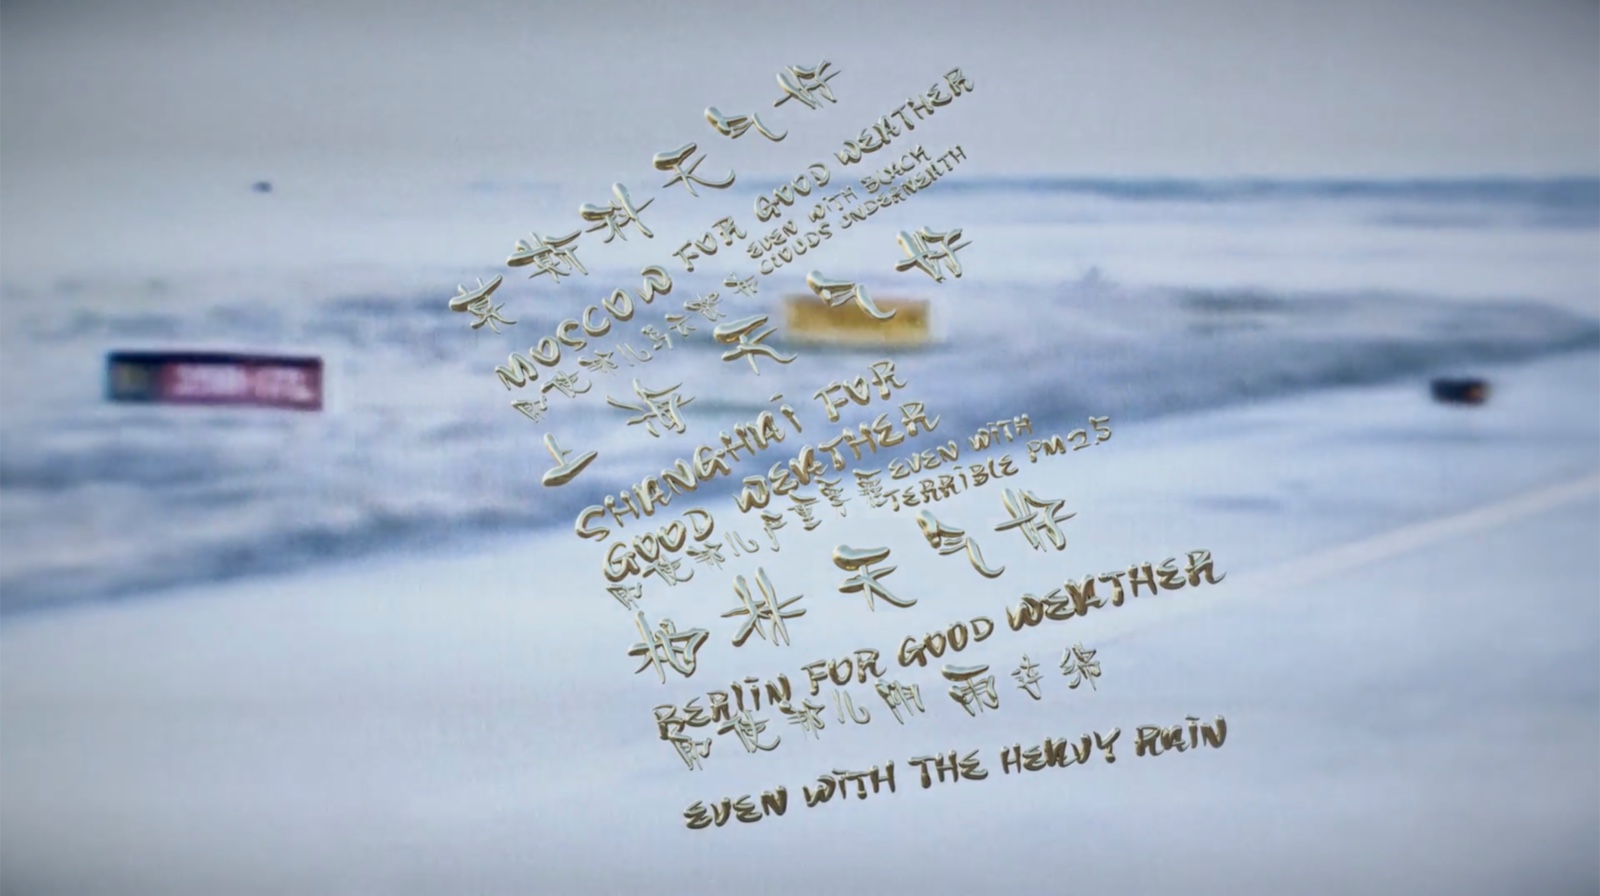 莫斯科天气好
MOSCOW FOR GOOD WEATHER
即使那儿乌云密布
EVEN WITH BLACK
CLOUDS UNDERNEATH
上海天气好
SHANGHAI FOR
GOOD WEATHER
即使那儿严重雾霾
EVEN WITH
TERRIBLE PM2.5
柏林天气好
BERLIN FOR GOOD WEATHER
即使那儿阴雨连绵
EVEN WITH THE HEAVY RAIN